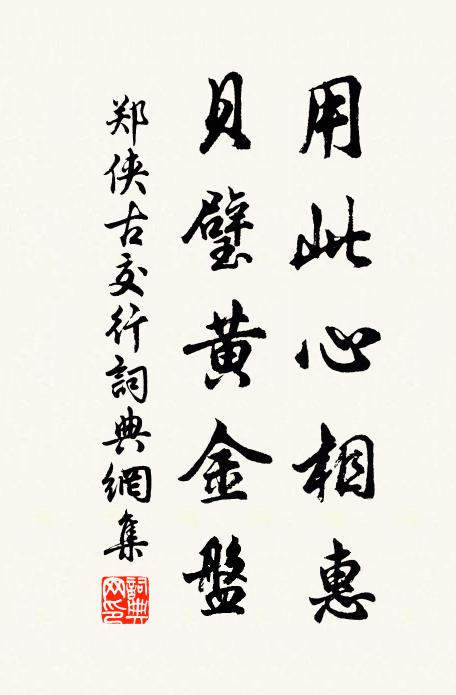 用此心相惠
貝璧黄金盤
郑侠古交行詞典網集
詞典网印